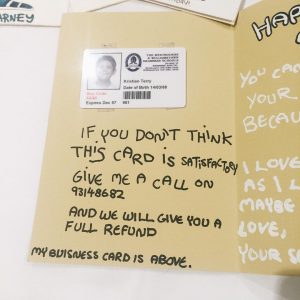 ARNEY
Kristian Terry
Date of Birth 14/03/98
Expires Dec 07
IF YOU DON'T THINK
THIS CARD IS SATISFACTORY
GIVE ME A CALL ON
93148682
AND WE WILL GIVE YOU A
FULL REFUND
MY BUISNESS CARD IS ABOVE.
HAP
YOU CA
YOUR
BECAU
I LOVE
AS I L
MAYBE
LOVE,
YOUR S